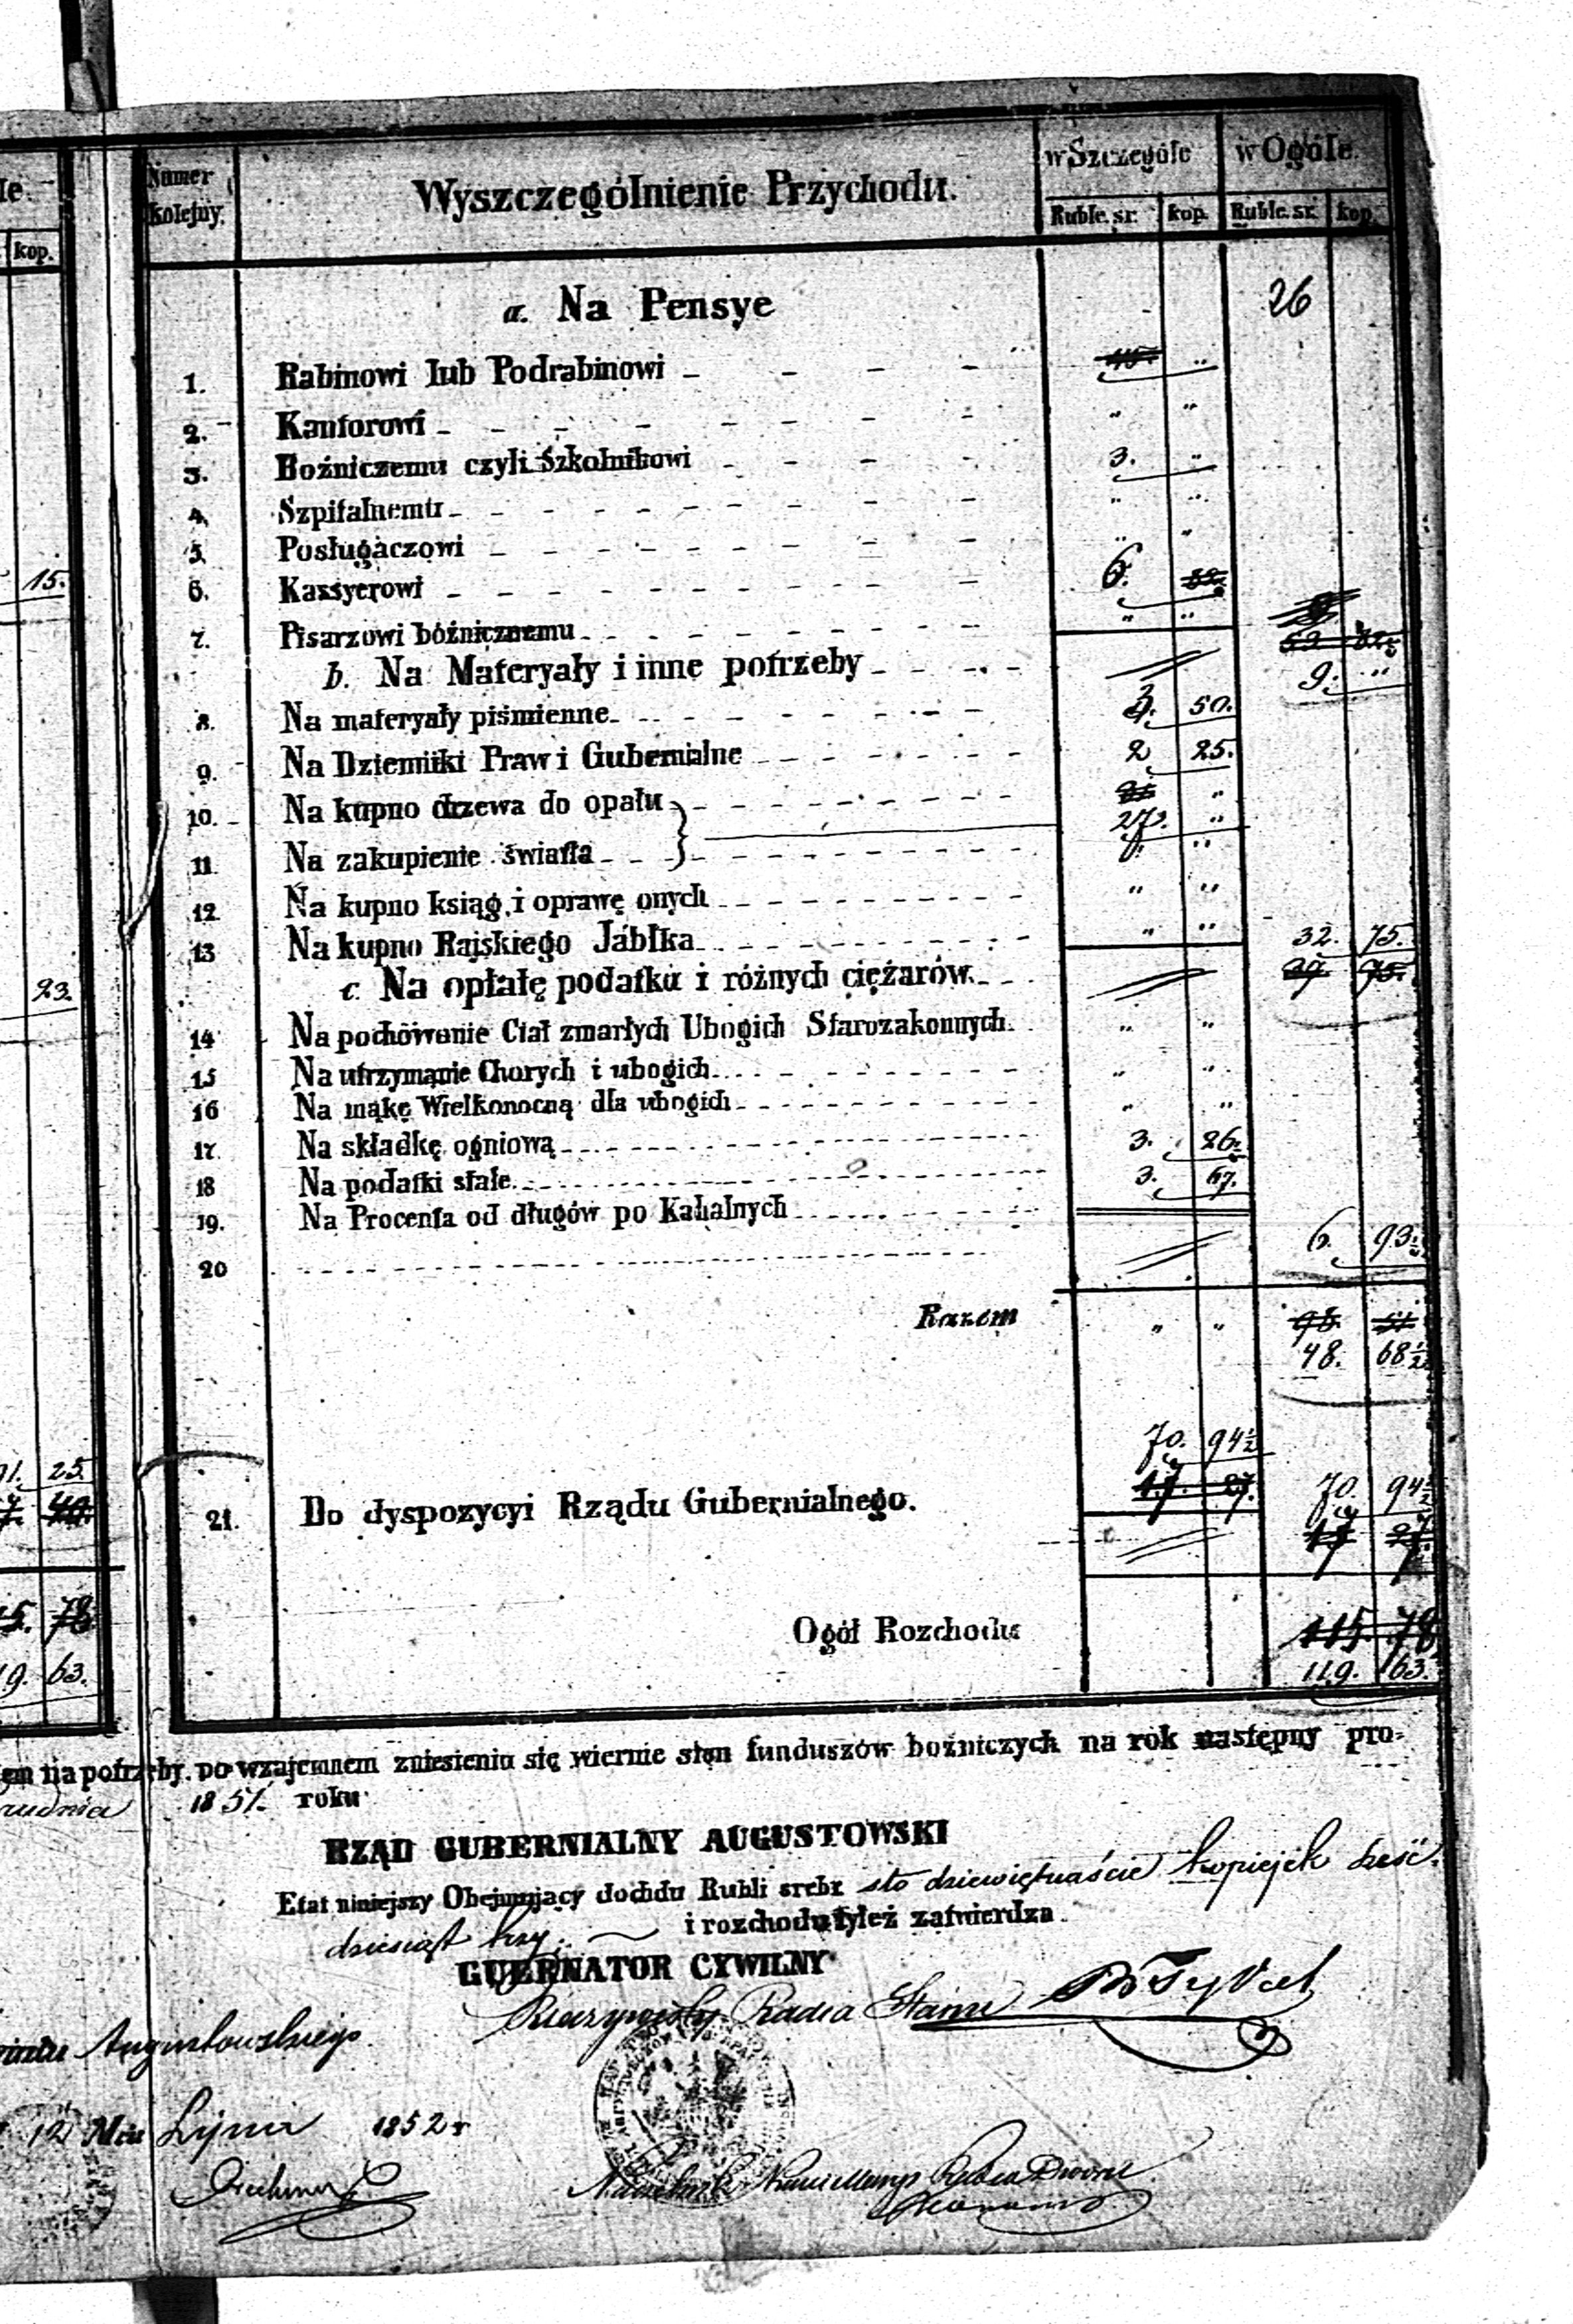 Numer kolejny.
Wyszczególnienie Przychodu.
w Szczególe
w Ogóle.
Ruble. sr. kop. Ruble. sr. kop.
kop.
a. Na Pensye
26
1. Rabinowi lub Podrabinowi
2. Kantorowi
3. Bożniczemu czyli Szkolnikowi 3.
4. Szpitalnemu
5. Posługaczowi
15.
6. Kassyerowi 6.
7. Pisarzowi bóżnicznemu
b. Na Materyały i inne potrzeby 9.
8. Na materyały piśmienne 3. 50.
9. Na Dzienniki Praw i Gubernialne 2 25.
10. Na kupno drzewa do opału
27.
11. Na zakupienie światła
12. Na kupno ksiąg i oprawę onych
13 Na kupno Rajskiego Jabłka 32. 75.
23.
c. Na opłatę podatku i różnych ciężarów. 39. 75.
14 Na pochowanie Ciał zmarłych Ubogich Starozakonnych.
15 Na utrzymanie Chorych i ubogich
16 Na mąkę Wielkonocną dla ubogich
17. Na składkę ogniową 3. 26.
18 Na podatki stałe. 3. 67.
19. Na Procenta od długów po Kahalnych
6. 93.
20
Razem
48. 68½
70. 94½
25.
21. Do dyspozycyi Rządu Gubernialnego. 17. 27. 70. 94½
17 27
78
Ogół Rozchodu 115. 78
9. 63. 119. 63.
na potrzeby. po wzajemnem zniesieniu się wiernie stan funduszów bożniczych na rok następny pro-
rudnia 1851. roku
RZĄD GUBERNIALNY AUGUSTOWSKI
Etat niniejszy Obejmujący dochdu Rubli srebr sto dziewiętnaście kopiejek sześć
dziesiąt trzy. i rozchodu tyleż zatwierdza.
GUBERNATOR CYWILNY
Rzeczywisty Radca Stanu
Augustowskiego
12 Mca Lipca 1852 r
Naczelnik Kancellaryi Radca Dworu